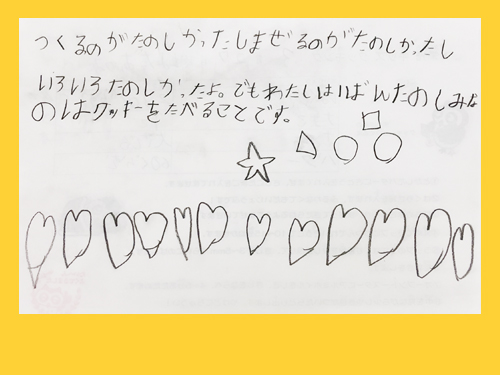 つくるのがたのしかったしまぜるのがたのしかったし
いろいろたのしかったよ。でもわたしはいばんたのしみな
のはクッキーをたべることです。